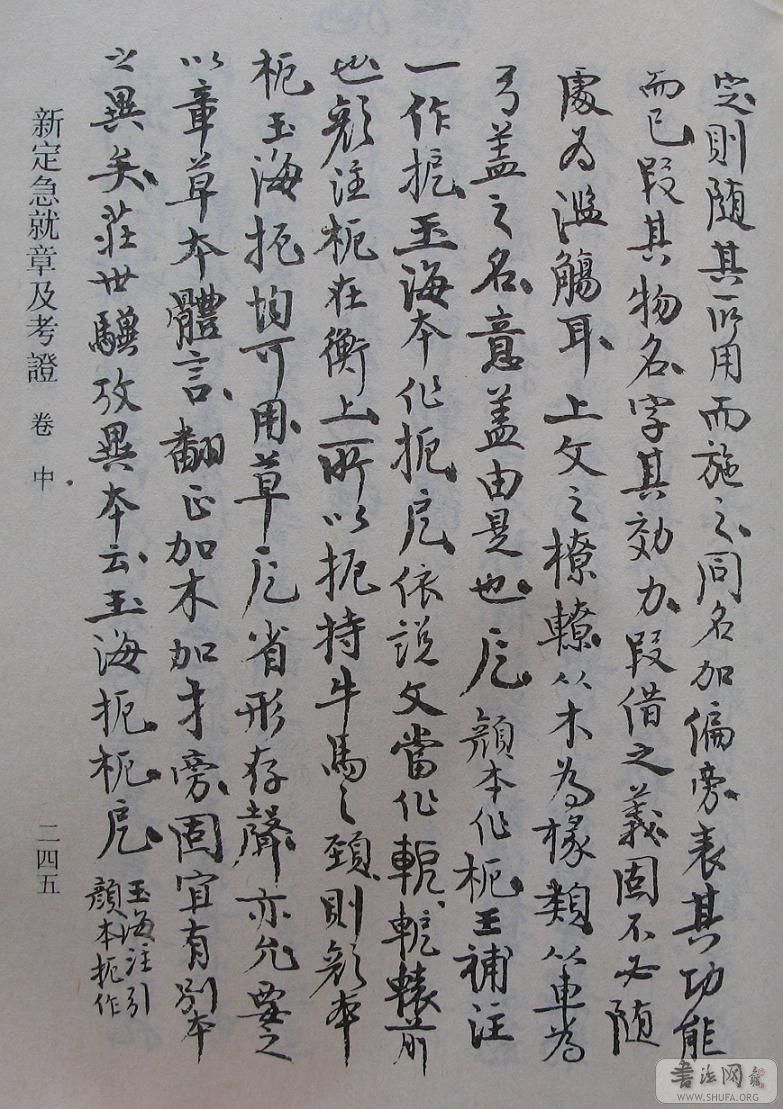 定則随其所用而施之同名加偏旁表其功能
而已叚其物名字其効力叚借之義固不必随
處為濫觴耳上文之橑轑以木為椽類以車為
弓盖之名意盖由是也戹顔本作枙王補注
一作扼玉海本作扼戹依說文當作軛軛轅前
也顔注枙在衡上所以扼持牛馬之頸則顔本
枙玉海扼均可用草戹省形存聲亦允要之
以章草本體言翻正加木加才旁固宜有别本
之異矣莊世驥攷異本云玉海扼枙戹
玉海注引
顔本扼作
新定急就章及考證 卷中
二四五
書法网
WWW.SHUFA.ORG